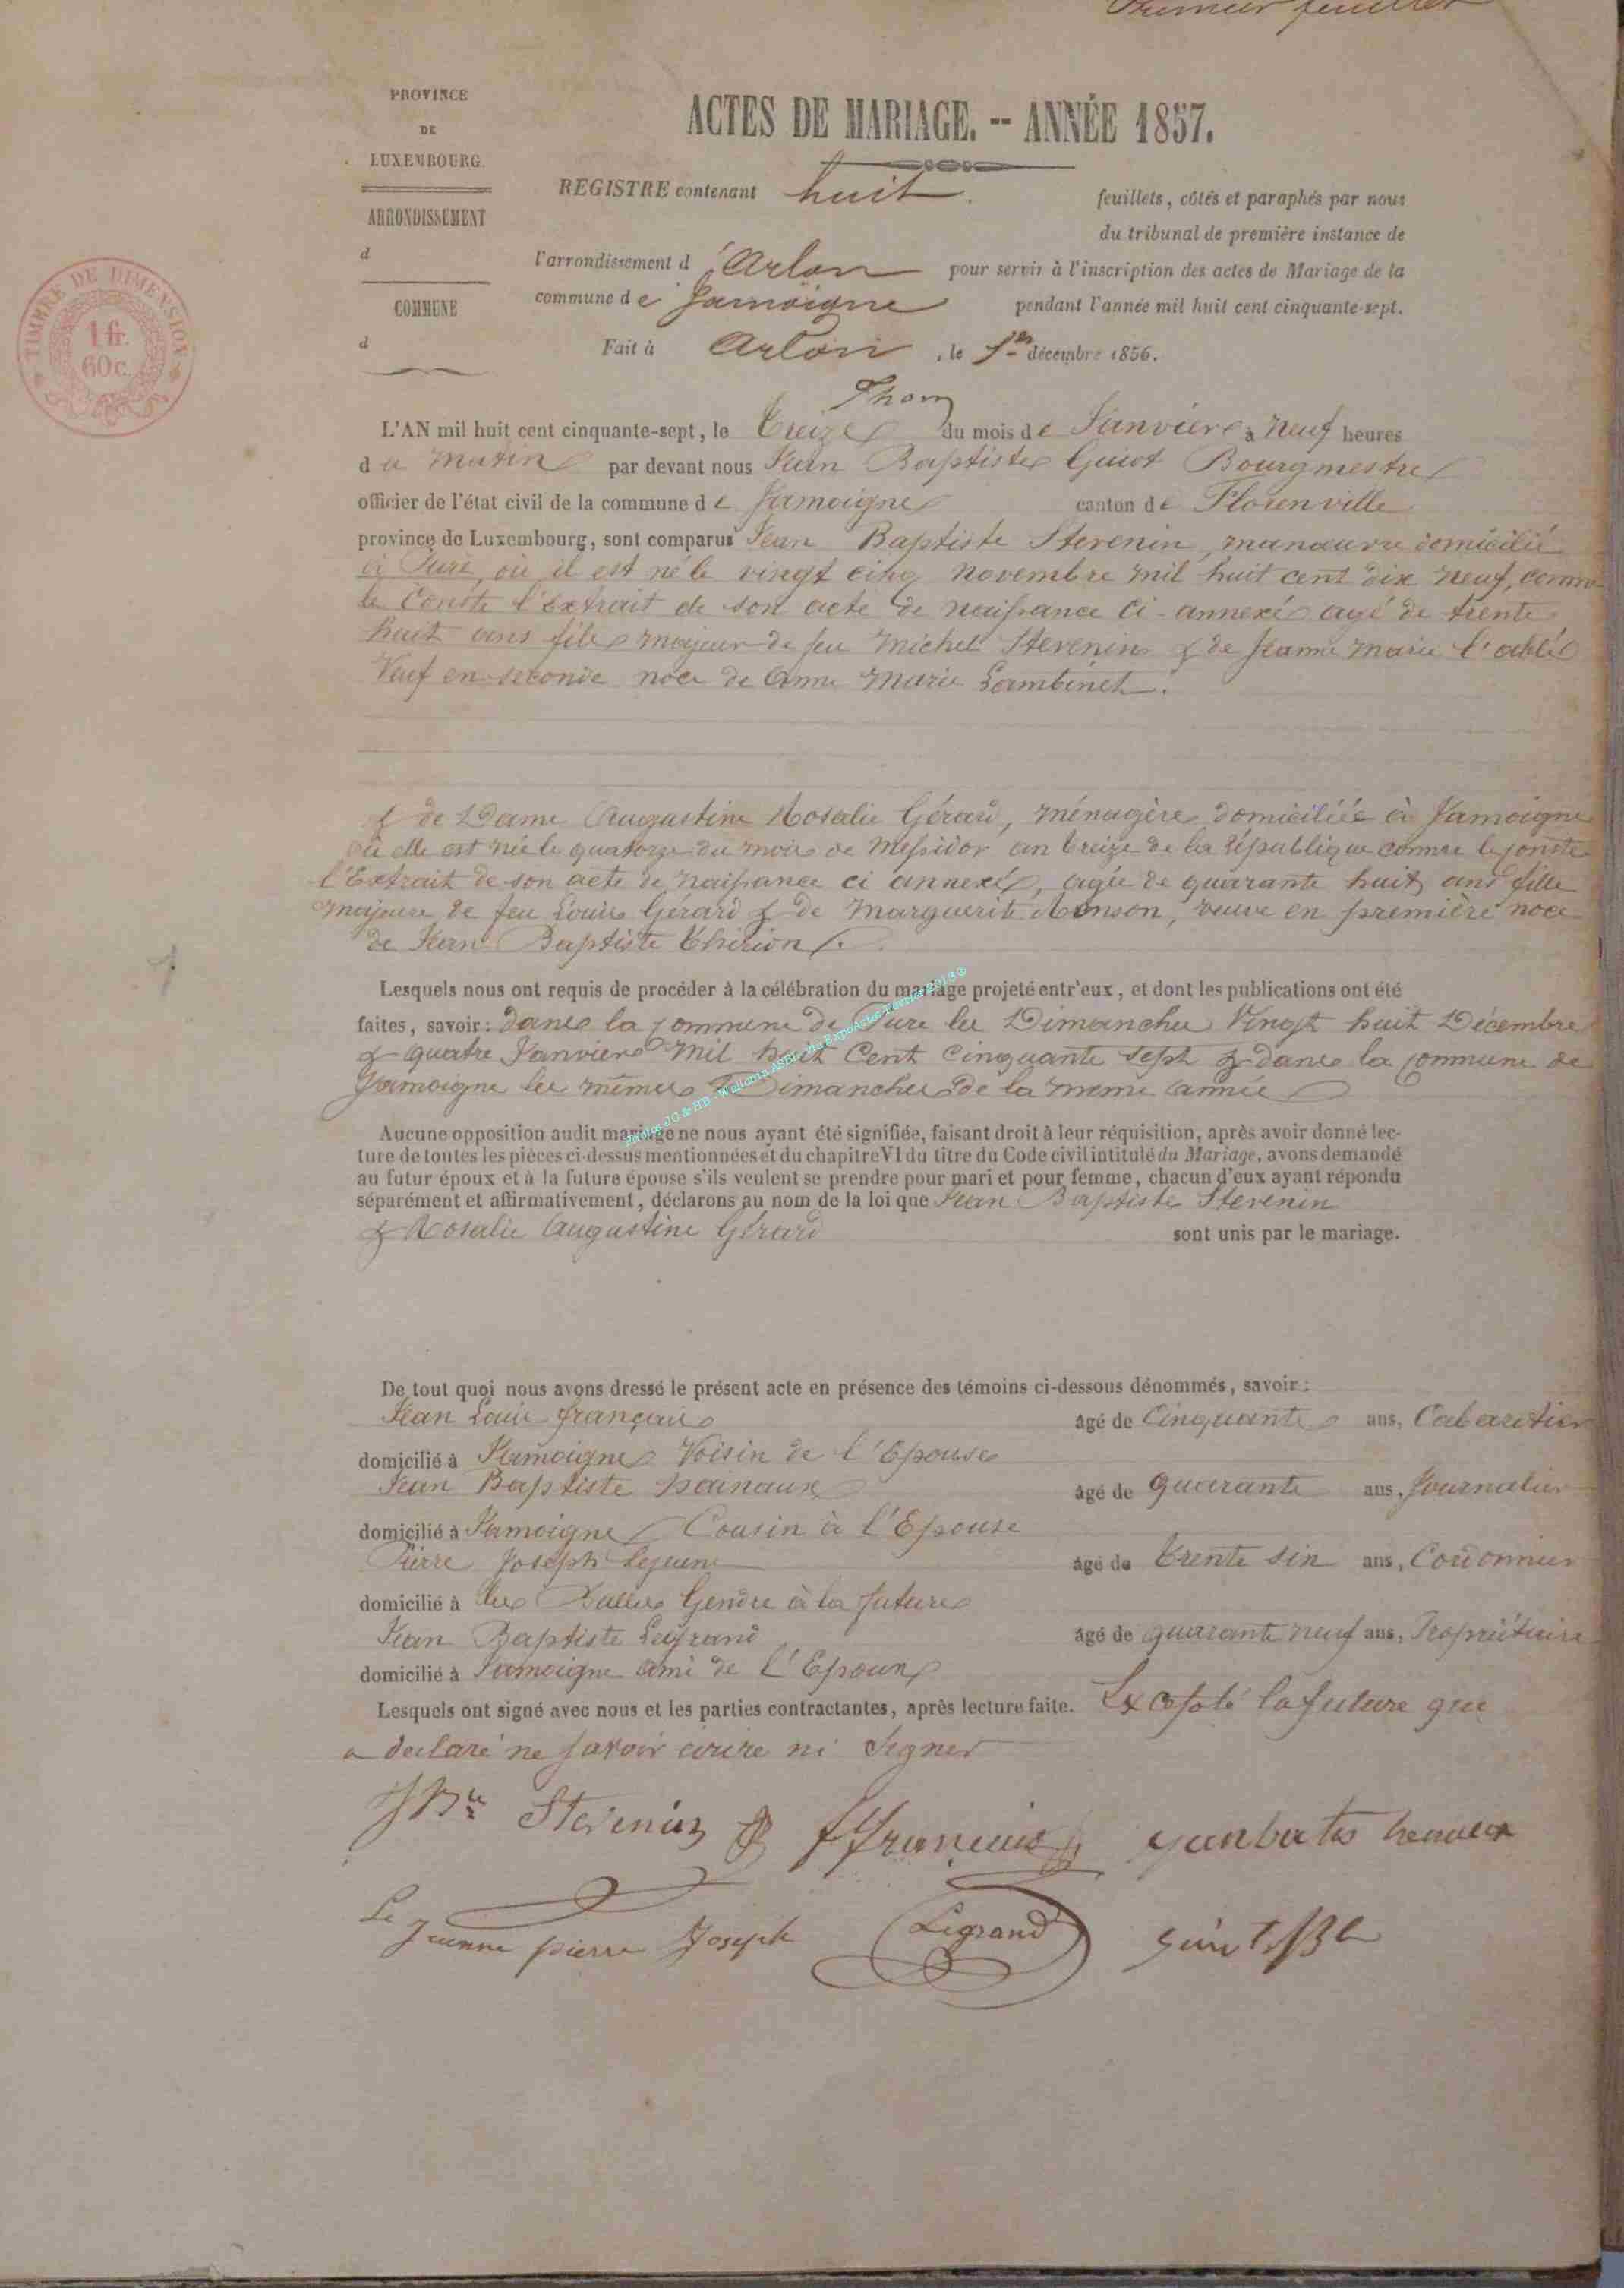 Premier feuillet
PROVINCE
DE
LUXEMBOURG.
ARRONDISSEMENT
d
COMMUNE
d
TIMBRE DE DIMENSION
1 fr.
60 c.
ACTES DE MARIAGE. -- ANNÉE 1857.
REGISTRE contenant huit feuillets, côtés et paraphés par nous
du tribunal de première instance de
l'arrondissement d'Arlon pour servir à l'inscription des actes de Mariage de la
commune de Jamoigne pendant l'année mil huit cent cinquante-sept.
Fait à Arlon, le 1er décembre 1856.
Thon
L'AN mil huit cent cinquante-sept, le Treize du mois de Janvier à neuf heures
du matin par devant nous Jean Baptiste Guiot Bourgmestre
officier de l'état civil de la commune de Jamoigne canton de Florenville
province de Luxembourg, sont comparus Jean Baptiste Stevenin, manœuvre domicilié
à Pure, où il est né le vingt cinq novembre mil huit cent dix neuf, comme
le Conste l'Extrait de son acte de naissance ci-annexé agé de trente
huit ans fils majeur de feu Michel Stevenin & de Jeanne Marie
Veuf en seconde noce de Anne Marie Lambinet.
& de Dame Augustine Rosalie Gérard, ménagère domiciliée à Jamoigne
où elle est née le quatorze du mois de Messidor an treize de la république comme le conste
l'Extrait de son acte de naissance ci annexé, agée de quarante huit ans fille
majeure de feu Louis Gérard & de Marguerite veuve en première noce
de Jean Baptiste Thirion.
Lesquels nous ont requis de procéder à la célébration du mariage projeté entr'eux, et dont les publications ont été
faites, savoir: dans la commune de Pure les Dimanches Vingt huit Décembre
& quatre Janvier Mil huit Cent Cinquante sept & dans la commune de
Jamoigne les mêmes Dimanches de la meme année
Aucune opposition audit mariage ne nous ayant été signifiée, faisant droit à leur réquisition, après avoir donné lec-
ture de toutes les pièces ci-dessus mentionnées et du chapitre VI du titre du Code civil intitulé du Mariage, avons demandé
au futur époux et à la future épouse s'ils veulent se prendre pour mari et pour femme, chacun d'eux ayant répondu
séparément et affirmativement, déclarons au nom de la loi que Jean Baptiste Stevenin
& Rosalie Augustine Gérard sont unis par le mariage.
De tout quoi nous avons dressé le présent acte en présence des témoins ci-dessous dénommés, savoir:
Jean Louis français agé de Cinquante ans, Cabaretier
domicilié à Jamoigne Voisin de l'Epouse
Jean Baptiste hainaux agé de quarante ans, Journalier
domicilié à Jamoigne Cousin à l'Epouse
Pierre Joseph Lejeune agé de trente six ans, Cordonnier
domicilié à les Bulles Gendre à la future
Jean Baptiste Legrand agé de quarante neuf ans, Propriétaire
domicilié à Jamoigne ami de l'Epoux
Lesquels ont signé avec nous et les parties contractantes, après lecture faite. Excepté la future que
a declaré ne savoir écrire ni Signer
JBte Stevenin JLfrancais
Le Jeunne pierre Joseph Legrand Guiot JB